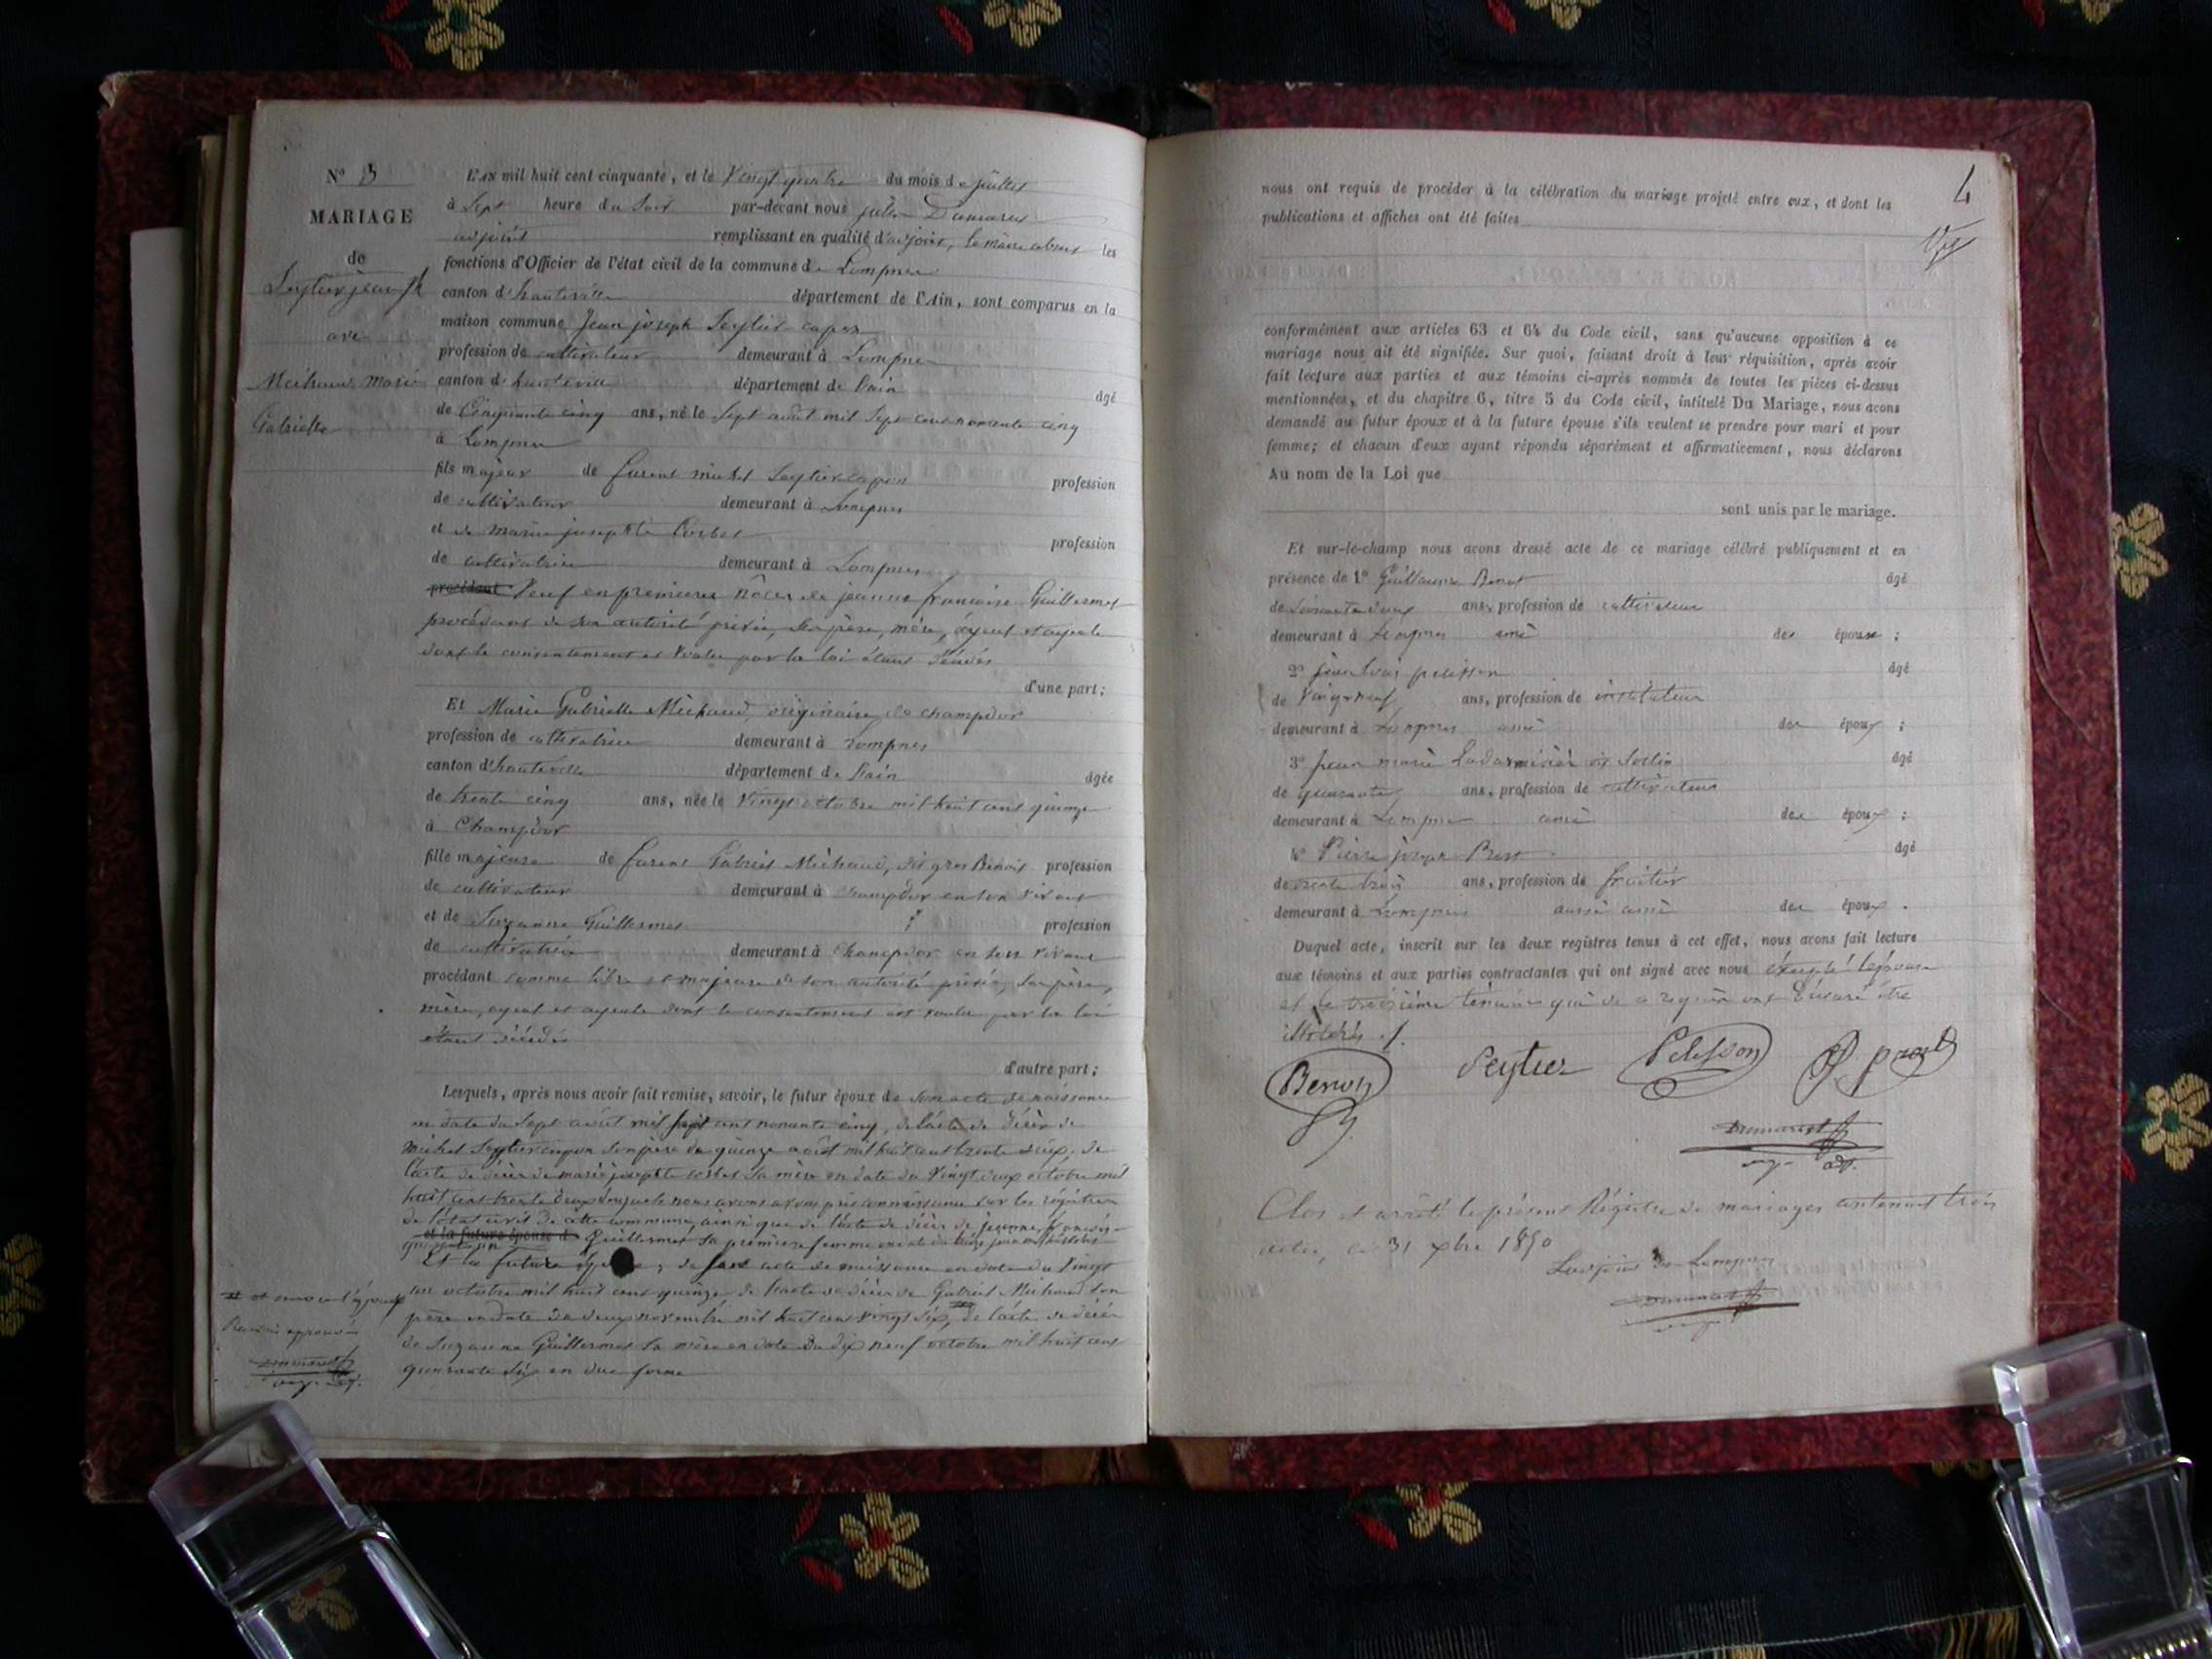 N° 3
MARIAGE
de
Seytier jean Jh
avec
Michaud marie
Gabrielle
L'AN mil huit cent cinquante, et le vingt quatre du mois de juillet
à Sept heure du Soir par-devant nous
adjoint remplissant en qualité d'adjoint, le maire absent les
fonctions d'Officier de l'état civil de la commune de Lompnes
canton d'hauteville département de l'Ain, sont comparus en la
maison commune Jean joseph Seytier
profession de cultivateur demeurant à Lompnes
canton d'hauteville département de l'ain âgé
de Cinquante cinq ans, né le Sept août mil Sept cent nonante cinq
à Lompnes
fils majeur de michel profession
de cultivateur demeurant à Lompnes
et de marie josephte profession
de cultivatrice demeurant à Lompnes
procédant Veuf en premières nôces de jeanne françoise Guillermet
procédant de son autorité privée, Ses père, mère, ayeul et ayeule
dont le consentement est voulu par la loi étant décédés
d'une part;
Et Marie Gabrielle Michaud, originaire de champdor
profession de cultivatrice demeurant à Lompnes
canton d'hauteville département de l'ain âgée
de trente cinq ans, née le vingt octobre mil huit cent quinze
à Champdor
fille majeure de Gabriel Michaud, dit gros Benoit profession
de cultivateur demeurant à Champdor en son vivant
et de Suzanne Guillermet profession
de cultivatrice demeurant à Champdor en son vivant
procédant comme libre et majeure de son autorité privée, Ses père,
mère, ayeul et ayeule dont le consentement est voulu par la loi
étant décédés
d'autre part;
Lesquels, après nous avoir fait remise, savoir, le futur époux de son acte de naissance
en date du Sept août mil Sept cent nonante cinq, de l'acte de décès de
michel son père du quinze août mil huit cent trente, de
l'acte de décès de marie josephte sa mère en date du vingt deux octobre mil
huit cent trente deux nous avons pris connaissance sur les régistres
de l'état civil de cette commune, ainsi que de l'acte de décès de jeanne françoise
et la future épouse d Guillermet sa première femme
Et la future, de son acte de naissance en date du vingt
octobre mil huit cent quinze de l'acte de décès de Gabriel Michaud son
père en date du deux novembre mil huit cent vingt six, de l'acte de décès
de Suzanne Guillermet sa mère en date du dix neuf octobre mil huit cent
quarante six en due forme
Renvoi approuvé
4
nous ont requis de procéder à la célébration du mariage projeté entre eux, et dont les
publications et affiches ont été faites
conformément aux articles 63 et 64 du Code civil, sans qu'aucune opposition à ce
mariage nous ait été signifiée. Sur quoi, faisant droit à leur réquisition, après avoir
fait lecture aux parties et aux témoins ci-après nommés de toutes les pièces ci-dessus
mentionnées, et du chapitre 6, titre 5 du Code civil, intitulé Du Mariage, nous avons
demandé au futur époux et à la future épouse s'ils veulent se prendre pour mari et pour
femme; et chacun d'eux ayant répondu séparément et affirmativement, nous déclarons
Au nom de la Loi que
sont unis par le mariage.
Et sur-le-champ nous avons dressé acte de ce mariage célébré publiquement et en
présence de 1° Guillaume Benot âgé
de Soixante deux ans, profession de cultivateur
demeurant à Lompnes ami des époux ;
2° jean Louis pelisson âgé
de Vingt neuf ans, profession de instituteur
demeurant à Lompnes ami des époux ;
3° jean marie dit âgé
de quarante ans, profession de cultivateur
demeurant à Lompnes ami des époux ;
4° Pierre joseph Prost âgé
de trente trois ans, profession de fruitier
demeurant à Lompnes aussi ami des époux .
Duquel acte, inscrit sur les deux registres tenus à cet effet, nous avons fait lecture
aux témoins et aux parties contractantes qui ont signé avec nous excepté l'épouse
et le troisième témoin qui de ce requis ont déclaré être
illitérés ./.
Benoît Seytier Pelisson Prost
Dumarest
adj.
Clos et arrêté le présent Régistre de mariages contenant trois
actes, le 31 xbre 1850
L'adjoint de Lompnes
Dumarest